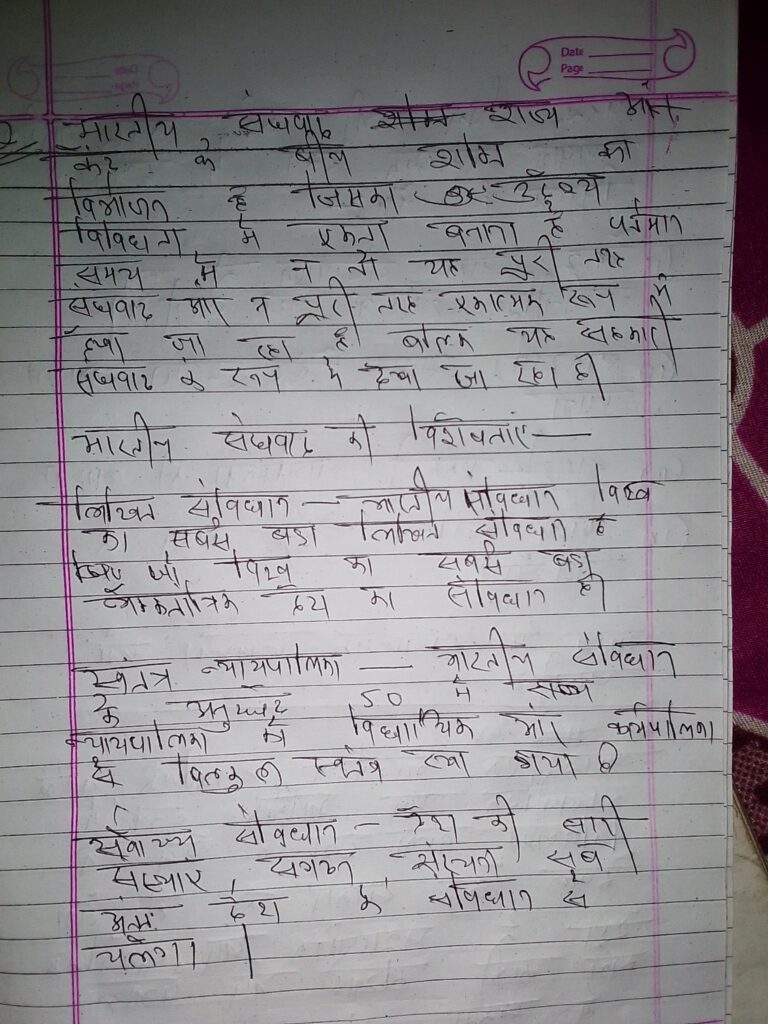 Date
Page
2 भारतीय संघवाद राज्य और
केंद्र के बीच शक्ति का
विभाजन है जिसका उद्देश्य
विविधता में एकता बनाना है वर्तमान
समय में न तो यह पूरी तरह
संघवाद और न पूरी तरह एकात्मक रूप में
देखा जा रहा है बल्कि यह सहकारी
संघवाद के रूप में देखा जा रहा है।
भारतीय संघवाद की विशेषताएं —
लिखित संविधान — भारतीय संविधान विश्व
का सबसे बड़ा लिखित संविधान है
जो विश्व का सबसे बड़ा
लोकतांत्रिक देश का संविधान है।
स्वतंत्र न्यायपालिका — भारतीय संविधान
के अनुच्छेद 50 में
न्यायपालिका को विधायिका और कार्यपालिका
से बिल्कुल स्वतंत्र रखा गया है
सर्वोच्च संविधान – देश की सारी
संस्थाएं, संगठन, संरचना सब
देश के संविधान से
चलेगा।